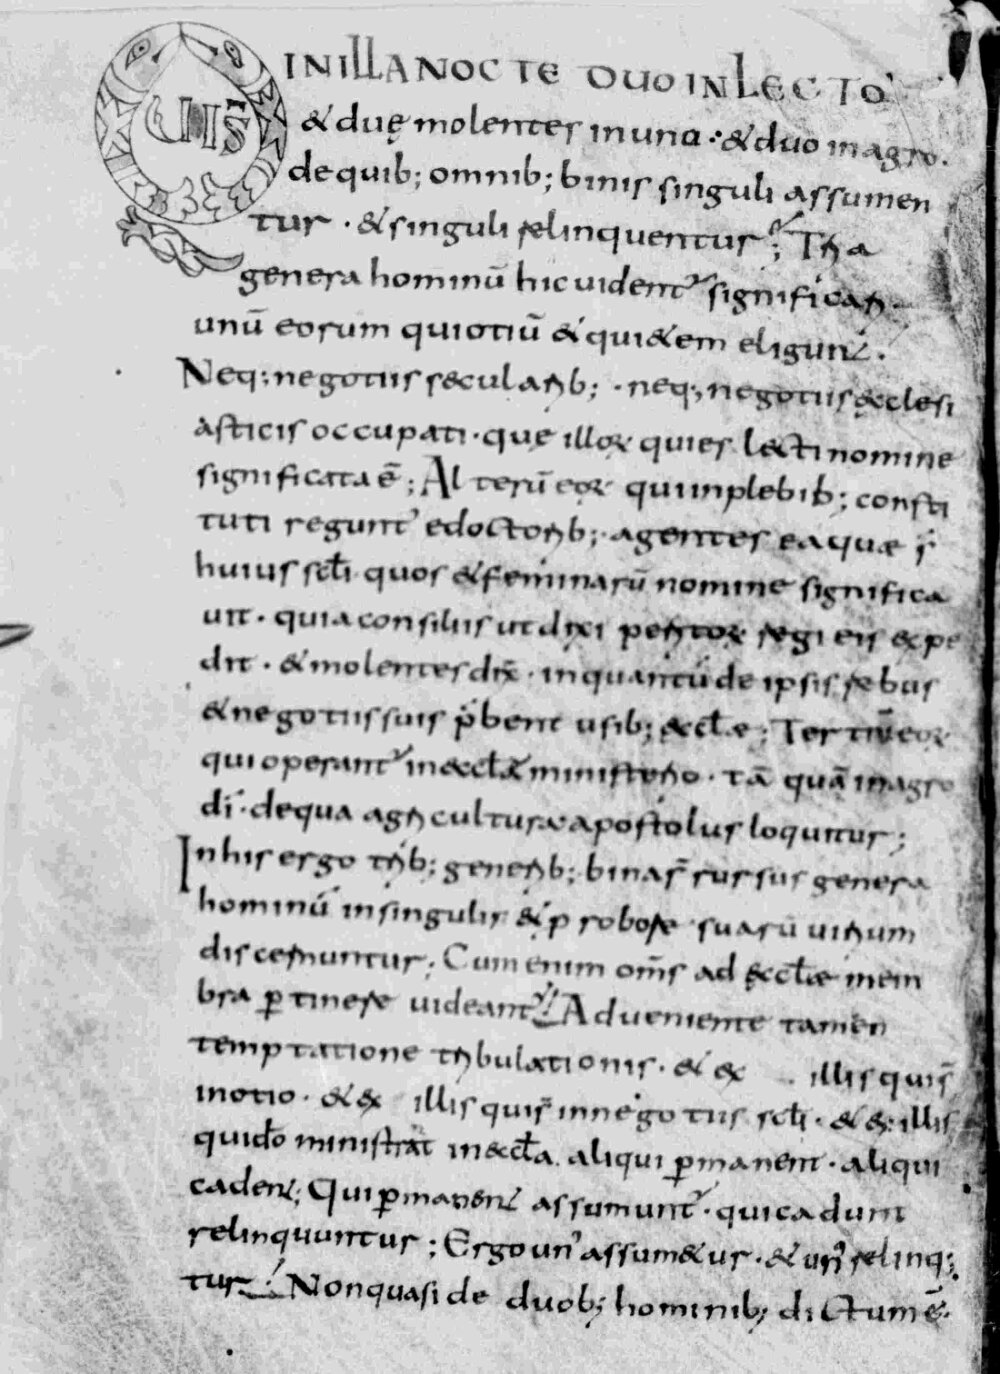 QUIS IN ILLA NOCTE DUO IN LECTO
& duę molentes in una · & duo in agro ·
de quib; omnib; binis singuli assumen
tur · & singuli relinquentur; Tria
genera hominū hic uident᾽ significari ·
unū eorum qui otiū & qui&em eligunt ·
Neq; negotiis secularib; · neq; negotiis ęcclesi
asticis occupati · quę illoꝝ quies lecti nomine
significata ē; Alterū eoꝝ qui in plebib; consti
tuti regunt᾽ e doctorib; · agentes ea quæ s̄
huius sc̄li quos & feminarū nomine significa
uit · quia consiliis ut dixi peritoꝝ regi eis expe
dit · & molentes dix̄ · inquantū de ipsis rebus
& negotiis suis p̄bent usib; æccl̄æ; Tertiū eoꝝ
qui operant᾽ in æccl̄æ ministerio · tā quā in agro
dī · de qua agricultura apostolus loquitur;
In his ergo trib; generib; bina s̄ rursus genera
hominū in singulis & p robore suarū uirium
discernuntur; Cum enim om̄s ad æccl̄æ mem
bra ꝑtinere uideant᾽; Adueniente tamen
temptatione tribulationis · & ex illis qui s̄
in otio · & ex illis qui s̄ in negotiis sc̄li · & ex illis
qui dō ministrāt in æccl̄a aliqui ꝑmanent · aliqui
cadent; Qui ꝑmanent assumunt᾽ · qui cadunt
relinquuntur; Ergo un᾽ assum&ur · & un᾽ relinq;
tur; Non quasi de duob; hominib; dictum ē ·